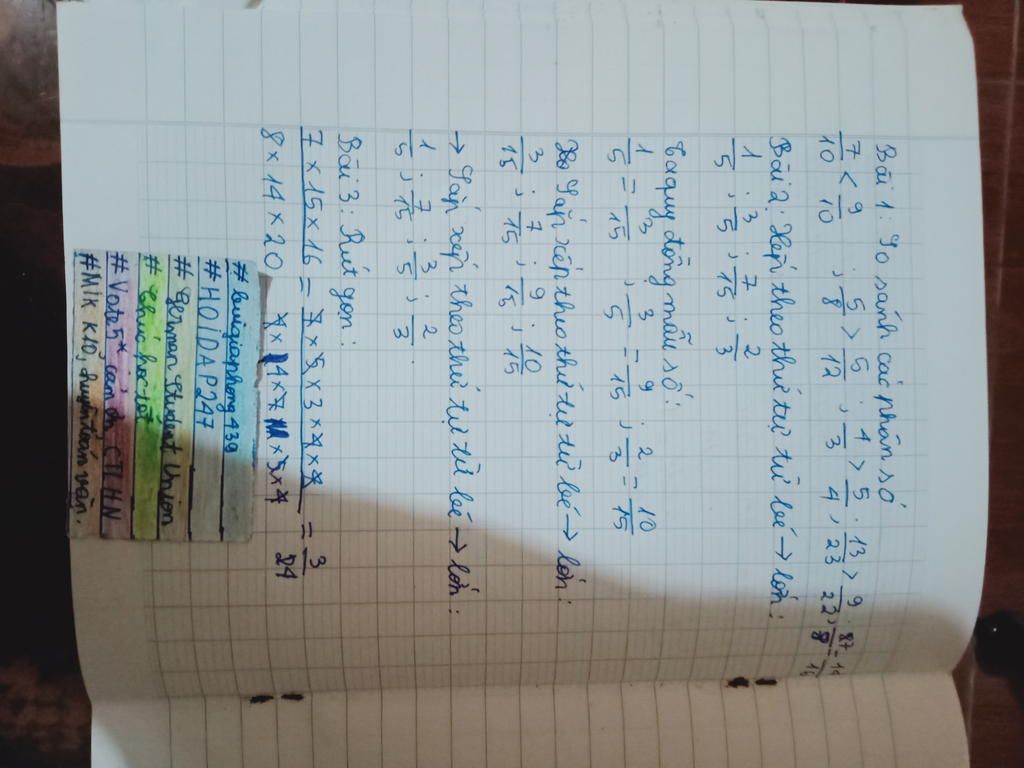 Bài 1: So sánh các phân số
7/10 < 9/10 ; 5/8 > 5/12 ; 4/3 > 5/4 ; 13/23 > 9/22 ;
Bài 2: Xếp theo thứ tự từ bé → lớn:
1/5 ; 3/5 ; 7/15 ; 2/3
Ta quy đồng mẫu số:
1/5 = 3/15 ; 3/5 = 9/15 ; 2/3 = 10/15
Sắp xếp theo thứ tự từ bé → lớn:
3/15 ; 7/15 ; 9/15 ; 10/15
→ Sắp xếp theo thứ tự từ bé → lớn:
1/5 ; 7/15 ; 3/5 ; 2/3.
Bài 3: Rút gọn:
7 × 15 × 16 / 8 × 14 × 20 = 7 × 5 × 3 × 4 × 4 / = 3/
#buigiaphong439
#HOIDAP247
#German Student Union
#Chúc học tốt
#Vote 5* cảm ơn CTLHN
#Mik K10,